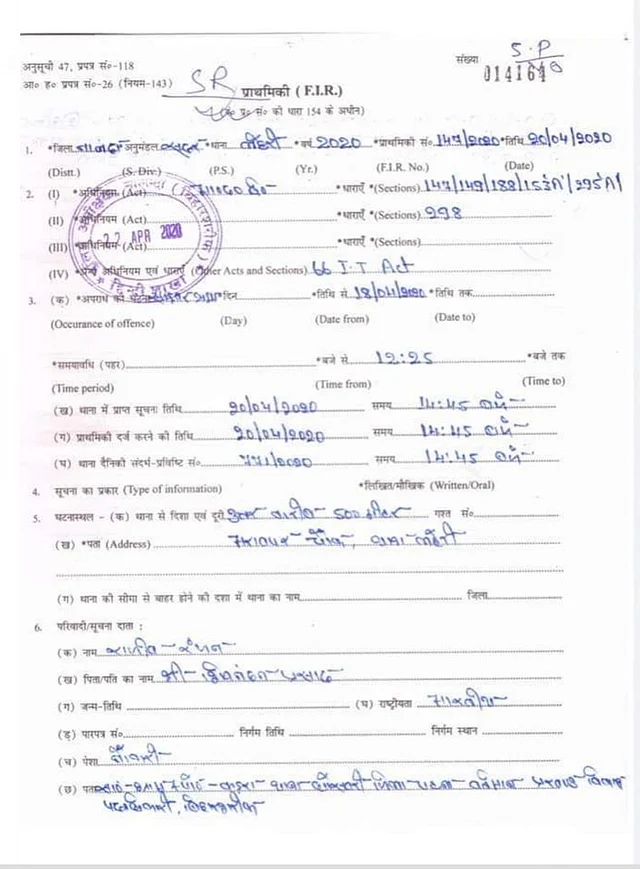 अनुसूची 47, प्रपत्र सं०-118
संख्या S.P
आ० ह० प्रपत्र सं०-26 (नियम-143)
SR
प्राथमिकी ( F.I.R.)
प्र० सं० की धारा 154 के अधीन)
1. *जिला नालन्दा अनुमंडल सदर *थाना लहेरी *वर्ष 2020 *प्राथमिकी सं० 147/2020 *तिथि 20/04/2020
(Distt.) (S. Div.) (P.S.) (Yr.) (F.I.R. No.) (Date)
2. (I) *अधिनियम (Act) *धाराएँ *(Sections) 147/149/188/153A/295A
(II) *अधिनियम (Act) *धाराएँ *(Sections) 298
(III) *अधिनियम (Act) *धाराएँ *(Sections)
22 APR 2020
(IV) *अन्य अधिनियम एवं धाराएँ (Other Acts and Sections) 66 I.T Act
हिन्दी शाखा
3. (क) *अपराध की घटना दिन *तिथि से 18/04/2020 *तिथि तक
(Occurance of offence) (Day) (Date from) (Date to)
*समयावधि (पहर) *बजे से 12:25 *बजे तक
(Time period) (Time from) (Time to)
(ख) थाना में प्राप्त सूचना तिथि 20/04/2020 समय 14:45 बजे
(ग) प्राथमिकी दर्ज करने की तिथि 20/04/2020 समय 14:45 बजे
(घ) थाना दैनिकी संदर्भ-प्रविष्टि सं० 771/2020 समय 14:45 बजे
4. सूचना का प्रकार (Type of information) *लिखित/मौखिक (Written/Oral)
5. घटनास्थल - (क) थाना से दिशा एवं दूरी 500 मीटर गश्त सं०
(ख) *पता (Address) चौक, थाना लहेरी
(ग) थाना की सीमा से बाहर होने की दशा में थाना का नाम जिला
6. परिवादी/सूचना दाता :
(क) नाम राजीव रंजन
(ख) पिता/पति का नाम श्री शिवनंदन प्रसाद
(ग) जन्म-तिथि (घ) राष्ट्रीयता भारतीय
(ड़) पारपत्र सं० निर्गम तिथि निर्गम स्थान
(च) पेशा नौकरी
(छ) पता थाना जिला पटना वर्तमान प्रखण्ड विकास
पदाधिकारी, बिहारशरीफ